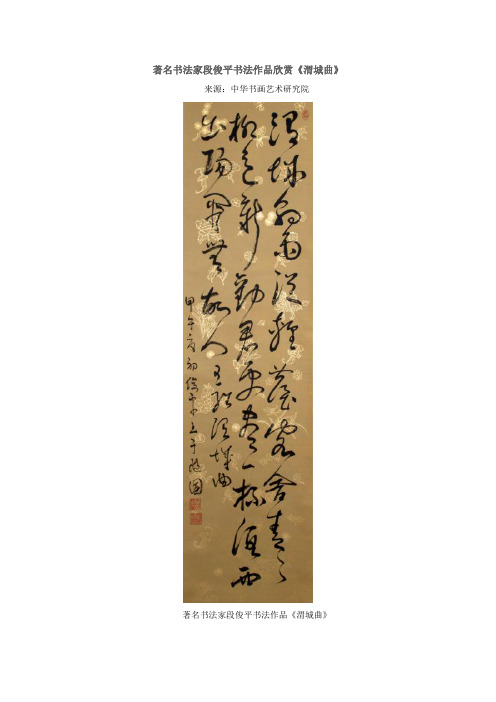 著名书法家段俊平书法作品欣赏《渭城曲》
来源：中华书画艺术研究院
渭城朝雨浥轻尘客舍青々
柳色新劝君更尽一杯酒西
出阳关无故人王维渭城曲
甲午夏初俊平书于
著名书法家段俊平书法作品《渭城曲》